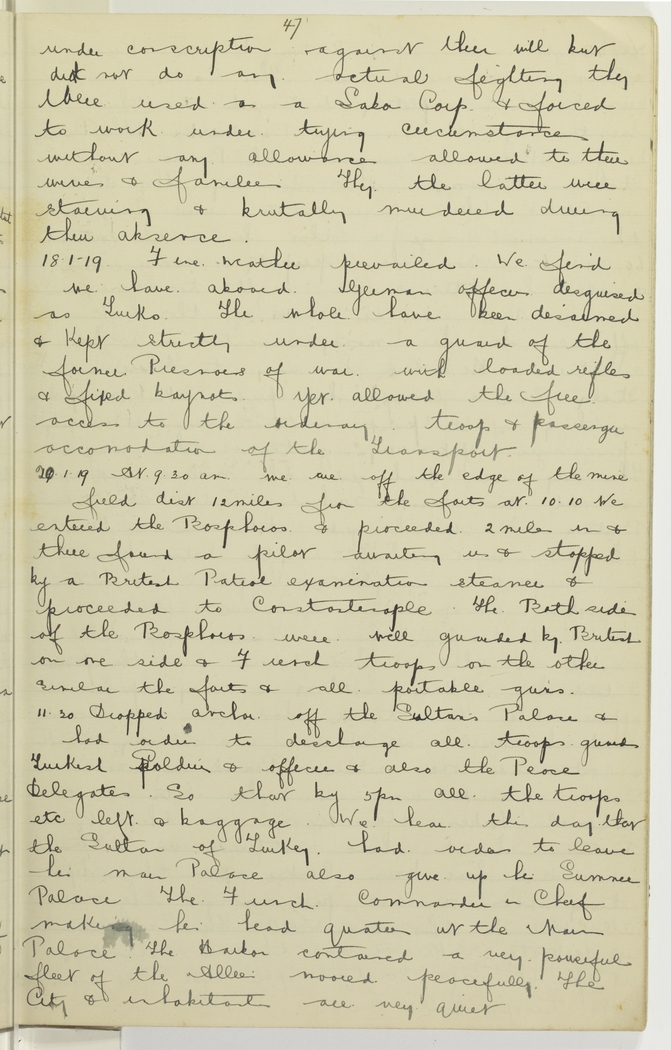 47
under conscription against their will but
did not do any actual fighting they
were used as a Labor Corp. & forced
to work under trying circumstances
without any allowance allowed to their
wives & families They the latter were
starving & brutally murdered during
their absence.
18.1.19 Fine weather prevailed. We find
we have aboard German officers disguised
as Turks. The whole have been disarmed
& Kept strictly under a guard of the
former Prisnoers of war with loaded rifles
& fixed baynots. Yet allowed the free
access to the ordinary troop & passenger
accomodation of the Transport.
20.1.19 At 9.30 am we are off the edge of the mine
field dist 12 miles from the forts at 10.10 We
entered the Bosphoros & proceeded 2 miles in &
there found a pilot awaiting us & stopped
by a British Patrol examination steamer &
proceeded to Constanterople. The Both side
of the Bosphoros were well guarded by British
on one side & French troops on the other
similar the forts & all portable guns.
11.30 Dropped anchor off the Sultans Palace &
had order to descharge all troops guards
Turkish Soldiers & officer & also the Peace
Delegates. So that by 5pm all the troops
etc left & baggage. We hear this day that
the Sultan of Turkey had orders to leave
his main Palace also give up his Summer
Palace The French Commander in Chief
making his head quaters at the Main
Palace The Harbor contained a very powerful
fleet of the Allies moored peacefully. The
City & inhabitants are very quiet